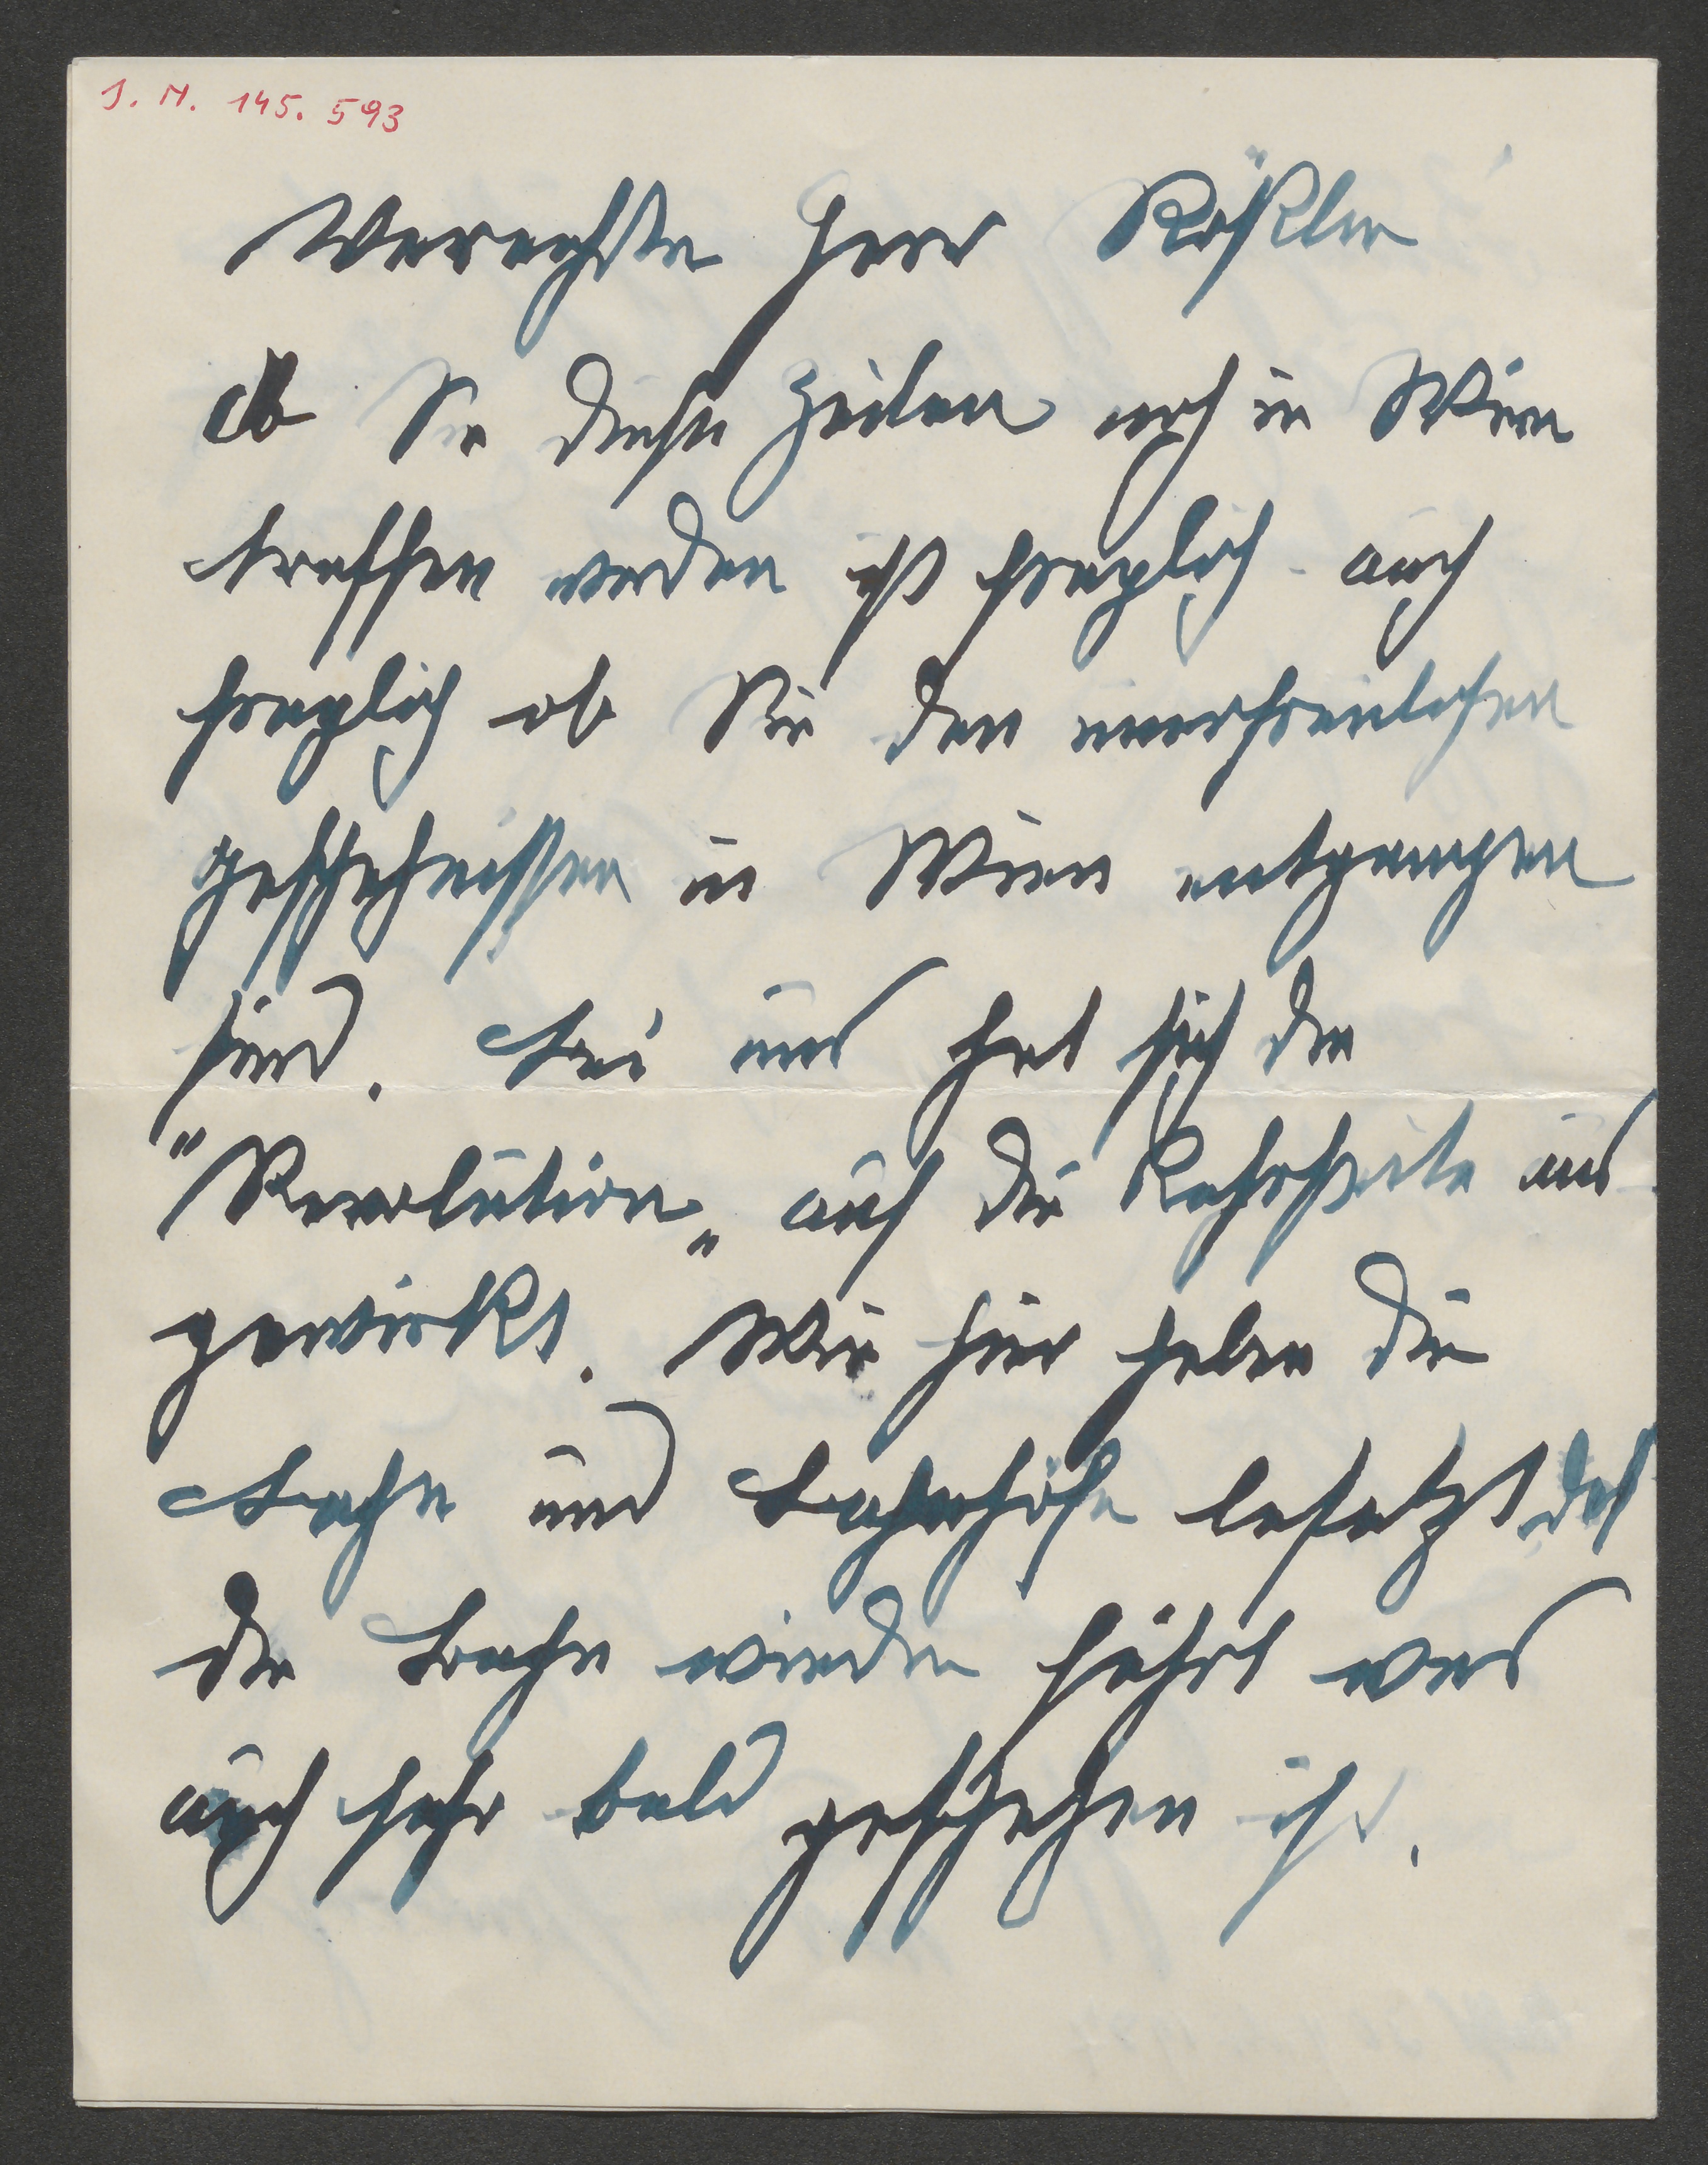 I. N. 145.593
Verehrter Herr Rößler
Ob Sie diese Zeilen noch in Wien
treffen werden ist fraglich - auch
fraglich ob Sie den unerfreulichen
Geschehnissen in Wien entgangen
sind. Bei uns hat sich die
"Revolution" auf die Kehrseite aus
gewirkt. Wir hier haben die
Bahn und Bahnhöfe besetzt daß
die Bahn wieder fährt was
auch sehr bald geschehen ist.